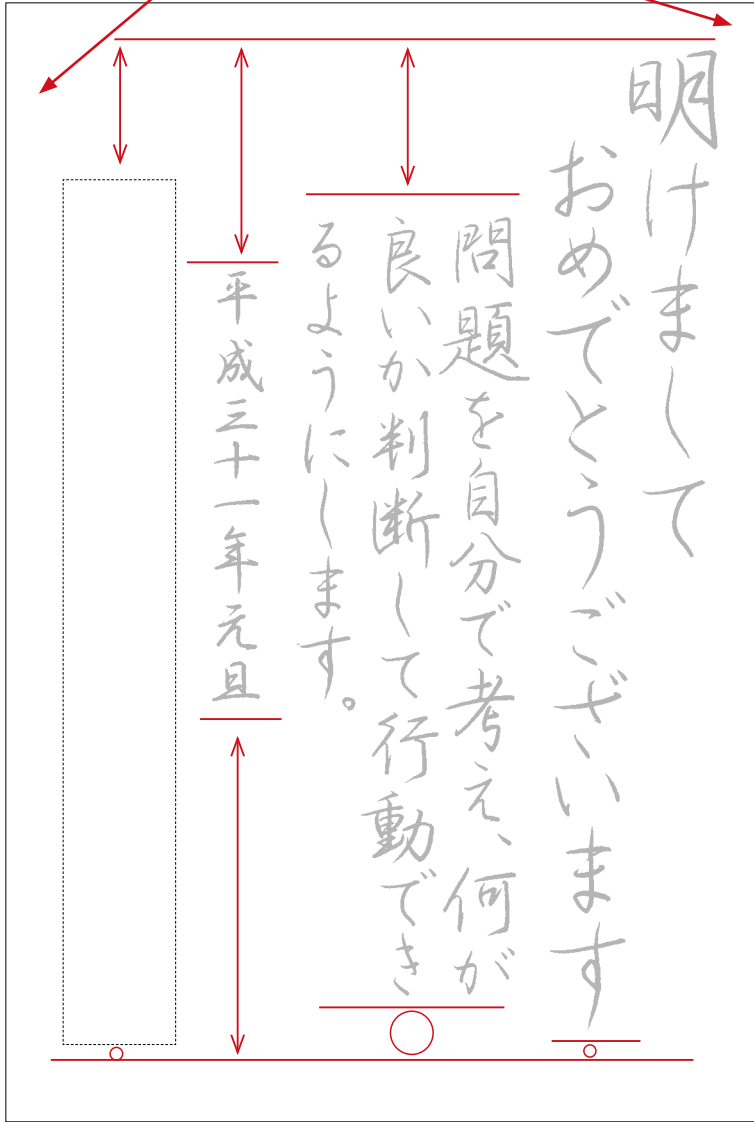 明けまして
おめでとうございます
問題を自分で考え、何が
良いか判断して行動でき
るようにします。
平成三十一年元旦